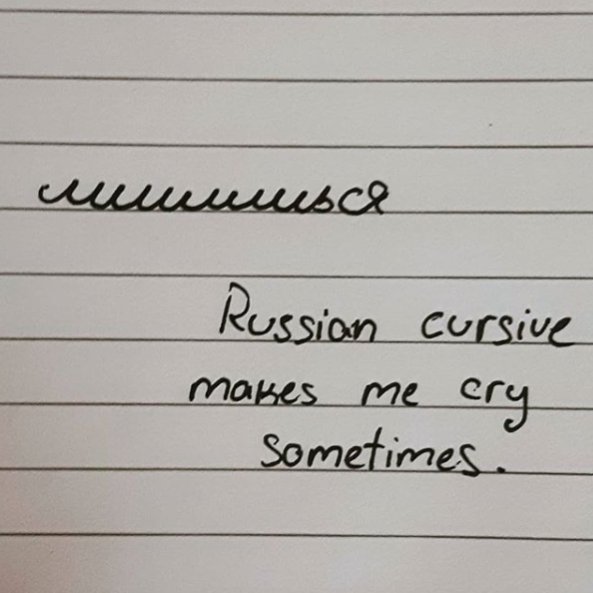 лишишься
Russian cursive
makes me cry
sometimes.